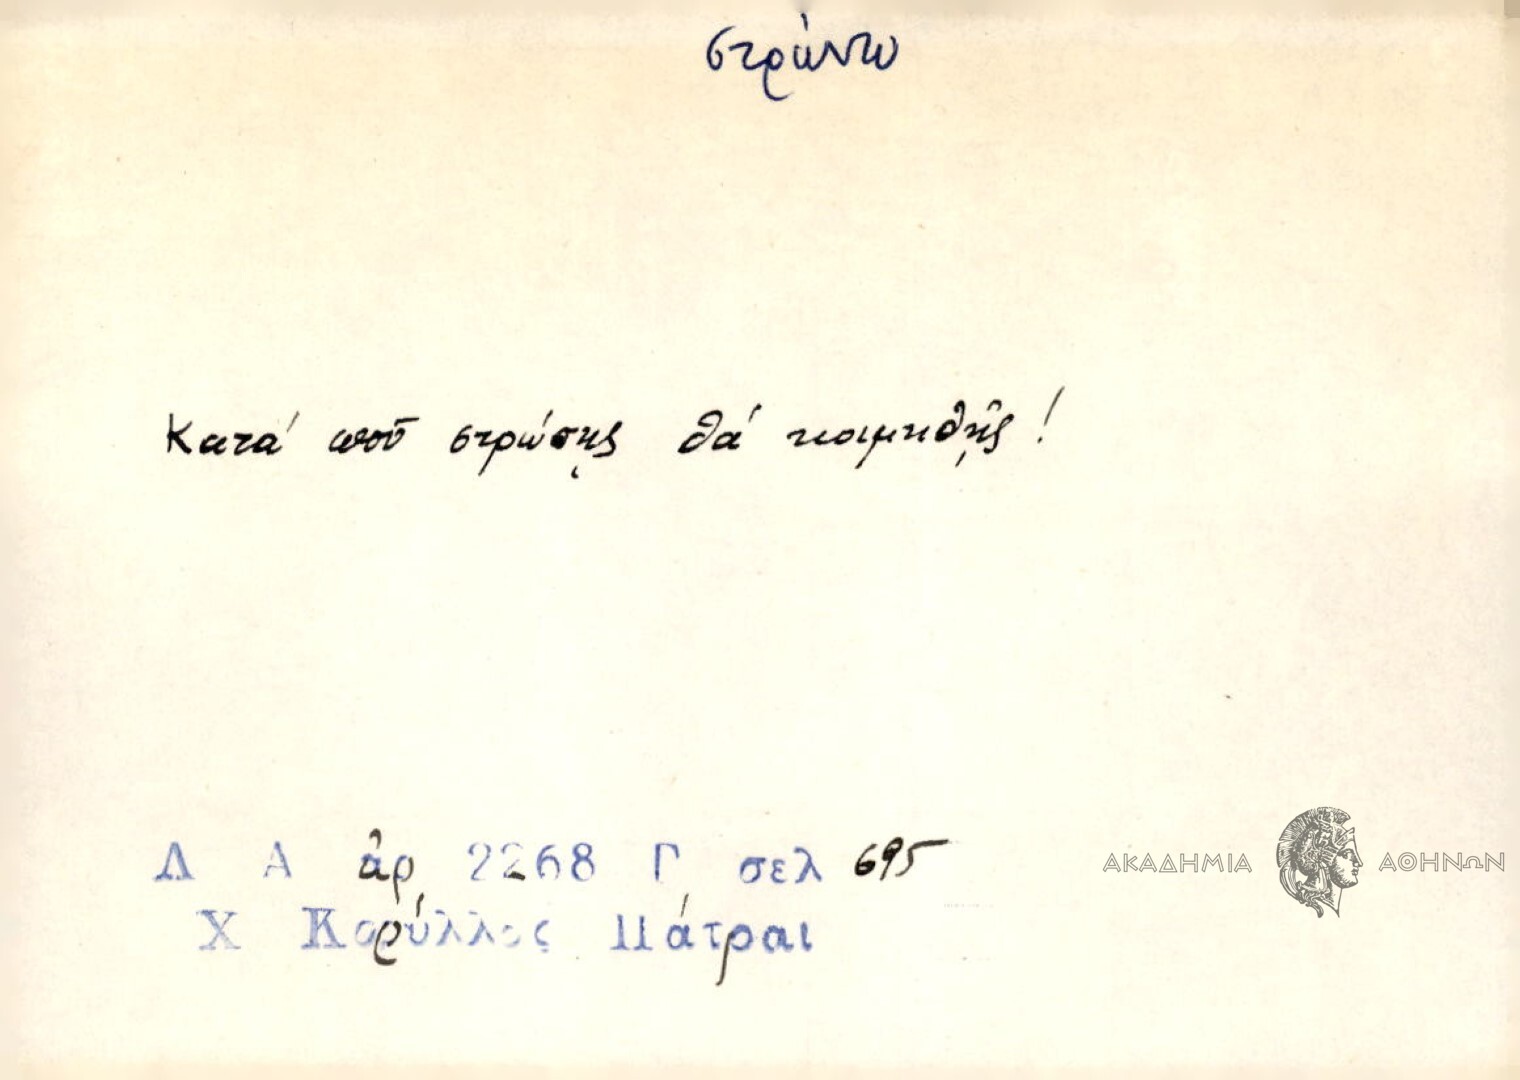 στρώνω
Κατά ποῦ στρώσῃς θά κοιμηθῇς!
Λ Α ἀρ 2268 Γ σελ 695
Χ Κορύλλος Πάτραι
ΑΚΑΔΗΜΙΑ ΑΘΗΝΩΝ